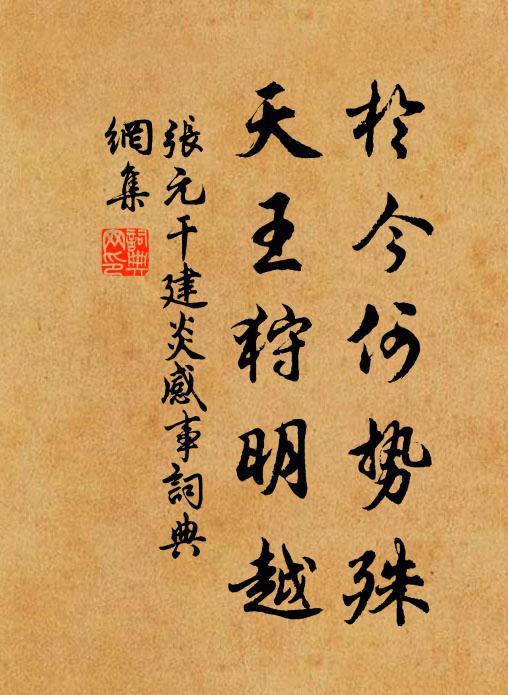 於今何势殊
天王狩明越
張元干建炎感事詞典
網集
詞典網印